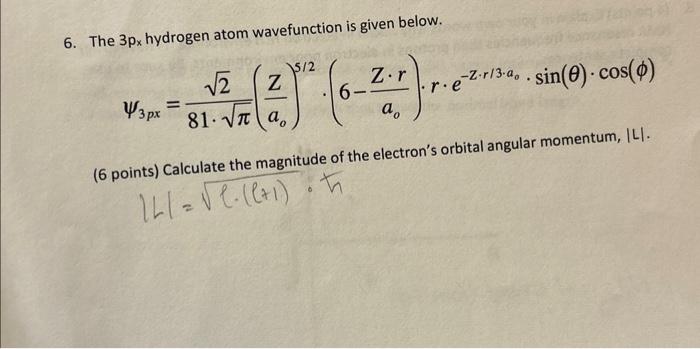 6. The 3pₓ hydrogen atom wavefunction is given below.
ψ₃ₚₓ = √2 / (81·√π) (Z / aₒ)^5/2 · (6 − Z·r / aₒ) · r · e^−Z·r/3·aₒ · sin(θ) · cos(ϕ)
(6 points) Calculate the magnitude of the electron's orbital angular momentum, |L|.
|L| = √ℓ·(ℓ+1) · ħ